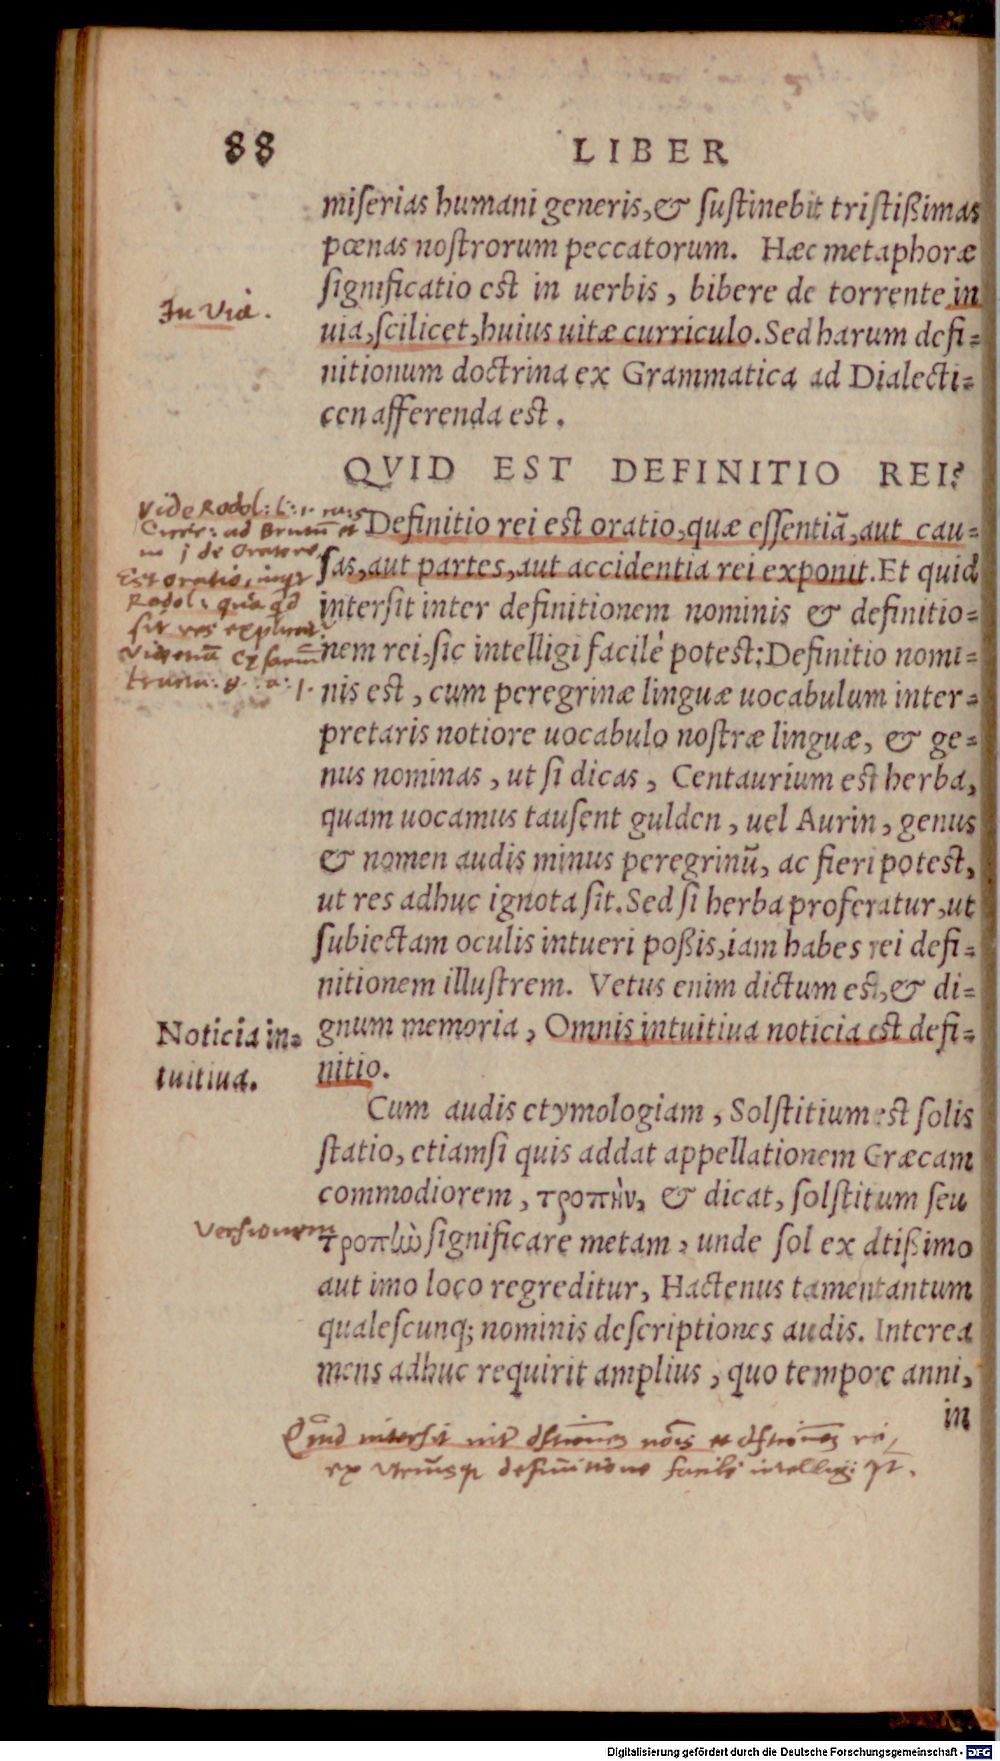 88 LIBER
miſerias humani generis, & ſuſtinebit triſtißimas
pœnas noſtrorum peccatorum. Hæc metaphoræ
ſignificatio est in uerbis, bibere de torrente in
In Via.
uia, ſcilicet, huius uitæ curriculo. Sed harum defi=
nitionum doctrina ex Grammatica ad Dialecti=
cen afferenda est.
QVID EST DEFINITIO REI?
Vide Rodol: L: 1.
Definitio rei est oratio, quæ eſſentiã, aut cau=
Cicer: ad Brutũ et
in j de Oratore
ſas, aut partes, aut accidentia rei exponit. Et quid
Est oratio, inqt
interſit inter definitionem nominis & definitio=
Rodol: qua qd
sit res
nem rei, ſic intelligi facilè potest: Definitio nomi=
nis est, cum peregrinæ linguæ uocabulum inter=
pretaris notiore uocabulo noſtræ linguæ, & ge=
nus nominas, ut ſi dicas, Centaurium est herba,
quam uocamus tauſent gulden, uel Aurin, genus
& nomen audis minus peregrinũ, ac fieri potest,
ut res adhuc ignota ſit. Sed ſi herba proferatur, ut
ſubiectam oculis intueri poßis, iam habes rei defi=
nitionem illuſtrem. Vetus enim dictum est, & di=
Noticia in=
gnum memoria, Omnis intuitiua noticia est defi=
tuitiua.
nitio.
Cum audis etymologiam, Solſtitium est ſolis
ſtatio, etiamſi quis addat appellationem Græcam
commodiorem, τροπὴν, & dicat, ſolſtitum ſeu
Versionem
τροπὴν ſignificare metam, unde ſol ex altißimo
aut imo loco regreditur, Hactenus tamen tantum
qualeſcunq; nominis deſcriptiones audis. Interea
mens adhuc requirit amplius, quo tempore anni,
in
Quid intersit
definitione facile intelligi
Digitalisierung gefördert durch die Deutsche Forschungsgemeinschaft - DFG